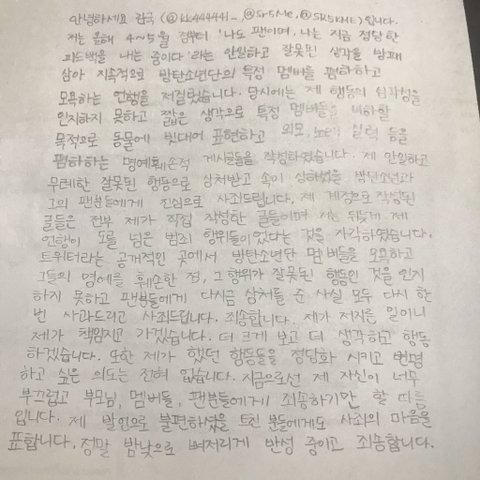 안녕하세요 감국 (@kk444441_ , @Sr5Me, @SR5KME)입니다.
저는 올해 4~5월 경부터 '나도 팬이며, 나는 지금 정당한
피드백을 나는 중이다' 라는 안일하고 잘못된 생각을 방패
삼아 지속적으로 방탄소년단의 특정 멤버를 폄하하고
모욕하는 언행을 저질렀습니다. 당시에는 제 행동의 심각성을
인지하지 못하고 짧은 생각으로 특정 멤버들을 비하할
목적으로 동물에 빗대어 표현하고 외모, 노래, 실력 등을
폄하하는 명예훼손적 게시글들을 작성하였습니다. 제 안일하고
무례한 잘못된 행동으로 상처받고 속이 상하셨을 방탄소년단과
그의 팬분들에게 진심으로 사죄드립니다. 제 계정으로 작성된
글들은 전부 제가 직접 작성한 글들이며 저는 뒤늦게 제
언행이 도를 넘은 범죄 행위들이었다는 것을 자각하였습니다.
트위터라는 공개적인 곳에서 방탄소년단 멤버들을 모욕하고
그들의 명예를 훼손한 점, 그 행위가 잘못된 행동인 것을 인지
하지 못하고 팬분들에게 다시금 상처를 준 사실 모두 다시 한
번 사과드리고 사죄드립니다. 죄송합니다. 제가 저지른 일이니
제가 책임지고 가겠습니다. 더 크게 보고 더 생각하고 행동
하겠습니다. 또한 제가 했던 행동들을 정당화 시키고 변명
하고 싶은 의도는 전혀 없습니다. 지금으로선 제 자신이 너무
부끄럽고 부모님, 멤버들, 팬분들에게 죄송하기만 할 따름
입니다. 제 발언으로 불편하셨을 트친 분들에게도 사죄의 마음을
표합니다. 정말 밤낮으로 뼈저리게 반성 중이고 죄송합니다.